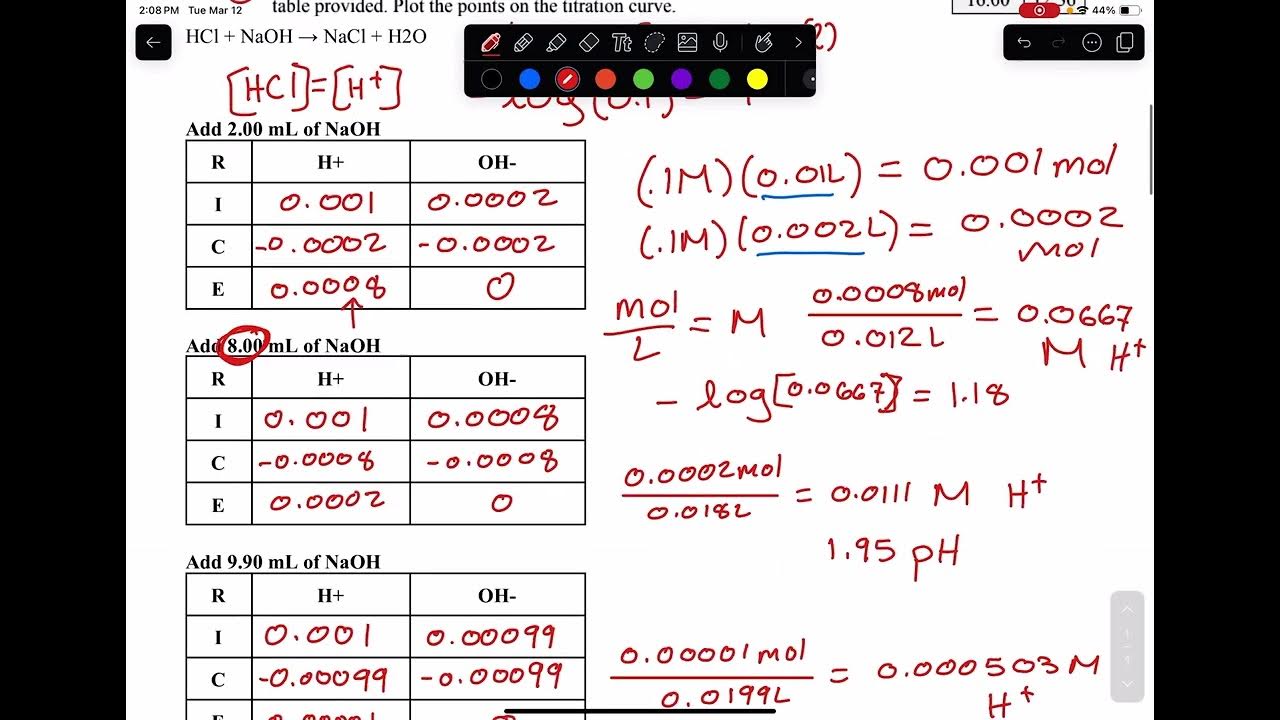 2:08 PM Tue Mar 12
44%
table provided. Plot the points on the titration curve.
HCl + NaOH → NaCl + H2O
Tt
[HCl]=[H+]
Add 2.00 mL of NaOH
R H+ OH-
I 0.001 0.0002
C -0.0002 -0.0002
E 0.0008 0
(.1M)(0.01L) = 0.001 mol
(.1M)(0.002L) = 0.0002
mol
mol/L = M 0.0008mol/0.012L = 0.0667
M H+
- log[0.0667] = 1.18
Add 8.00 mL of NaOH
R H+ OH-
I 0.001 0.0008
C -0.0008 -0.0008
E 0.0002 0
0.0002mol/0.018L = 0.0111 M H+
1.95 pH
Add 9.90 mL of NaOH
R H+ OH-
I 0.001 0.00099
C -0.00099 -0.00099
0.00001mol/0.0199L = 0.000503 M
H+